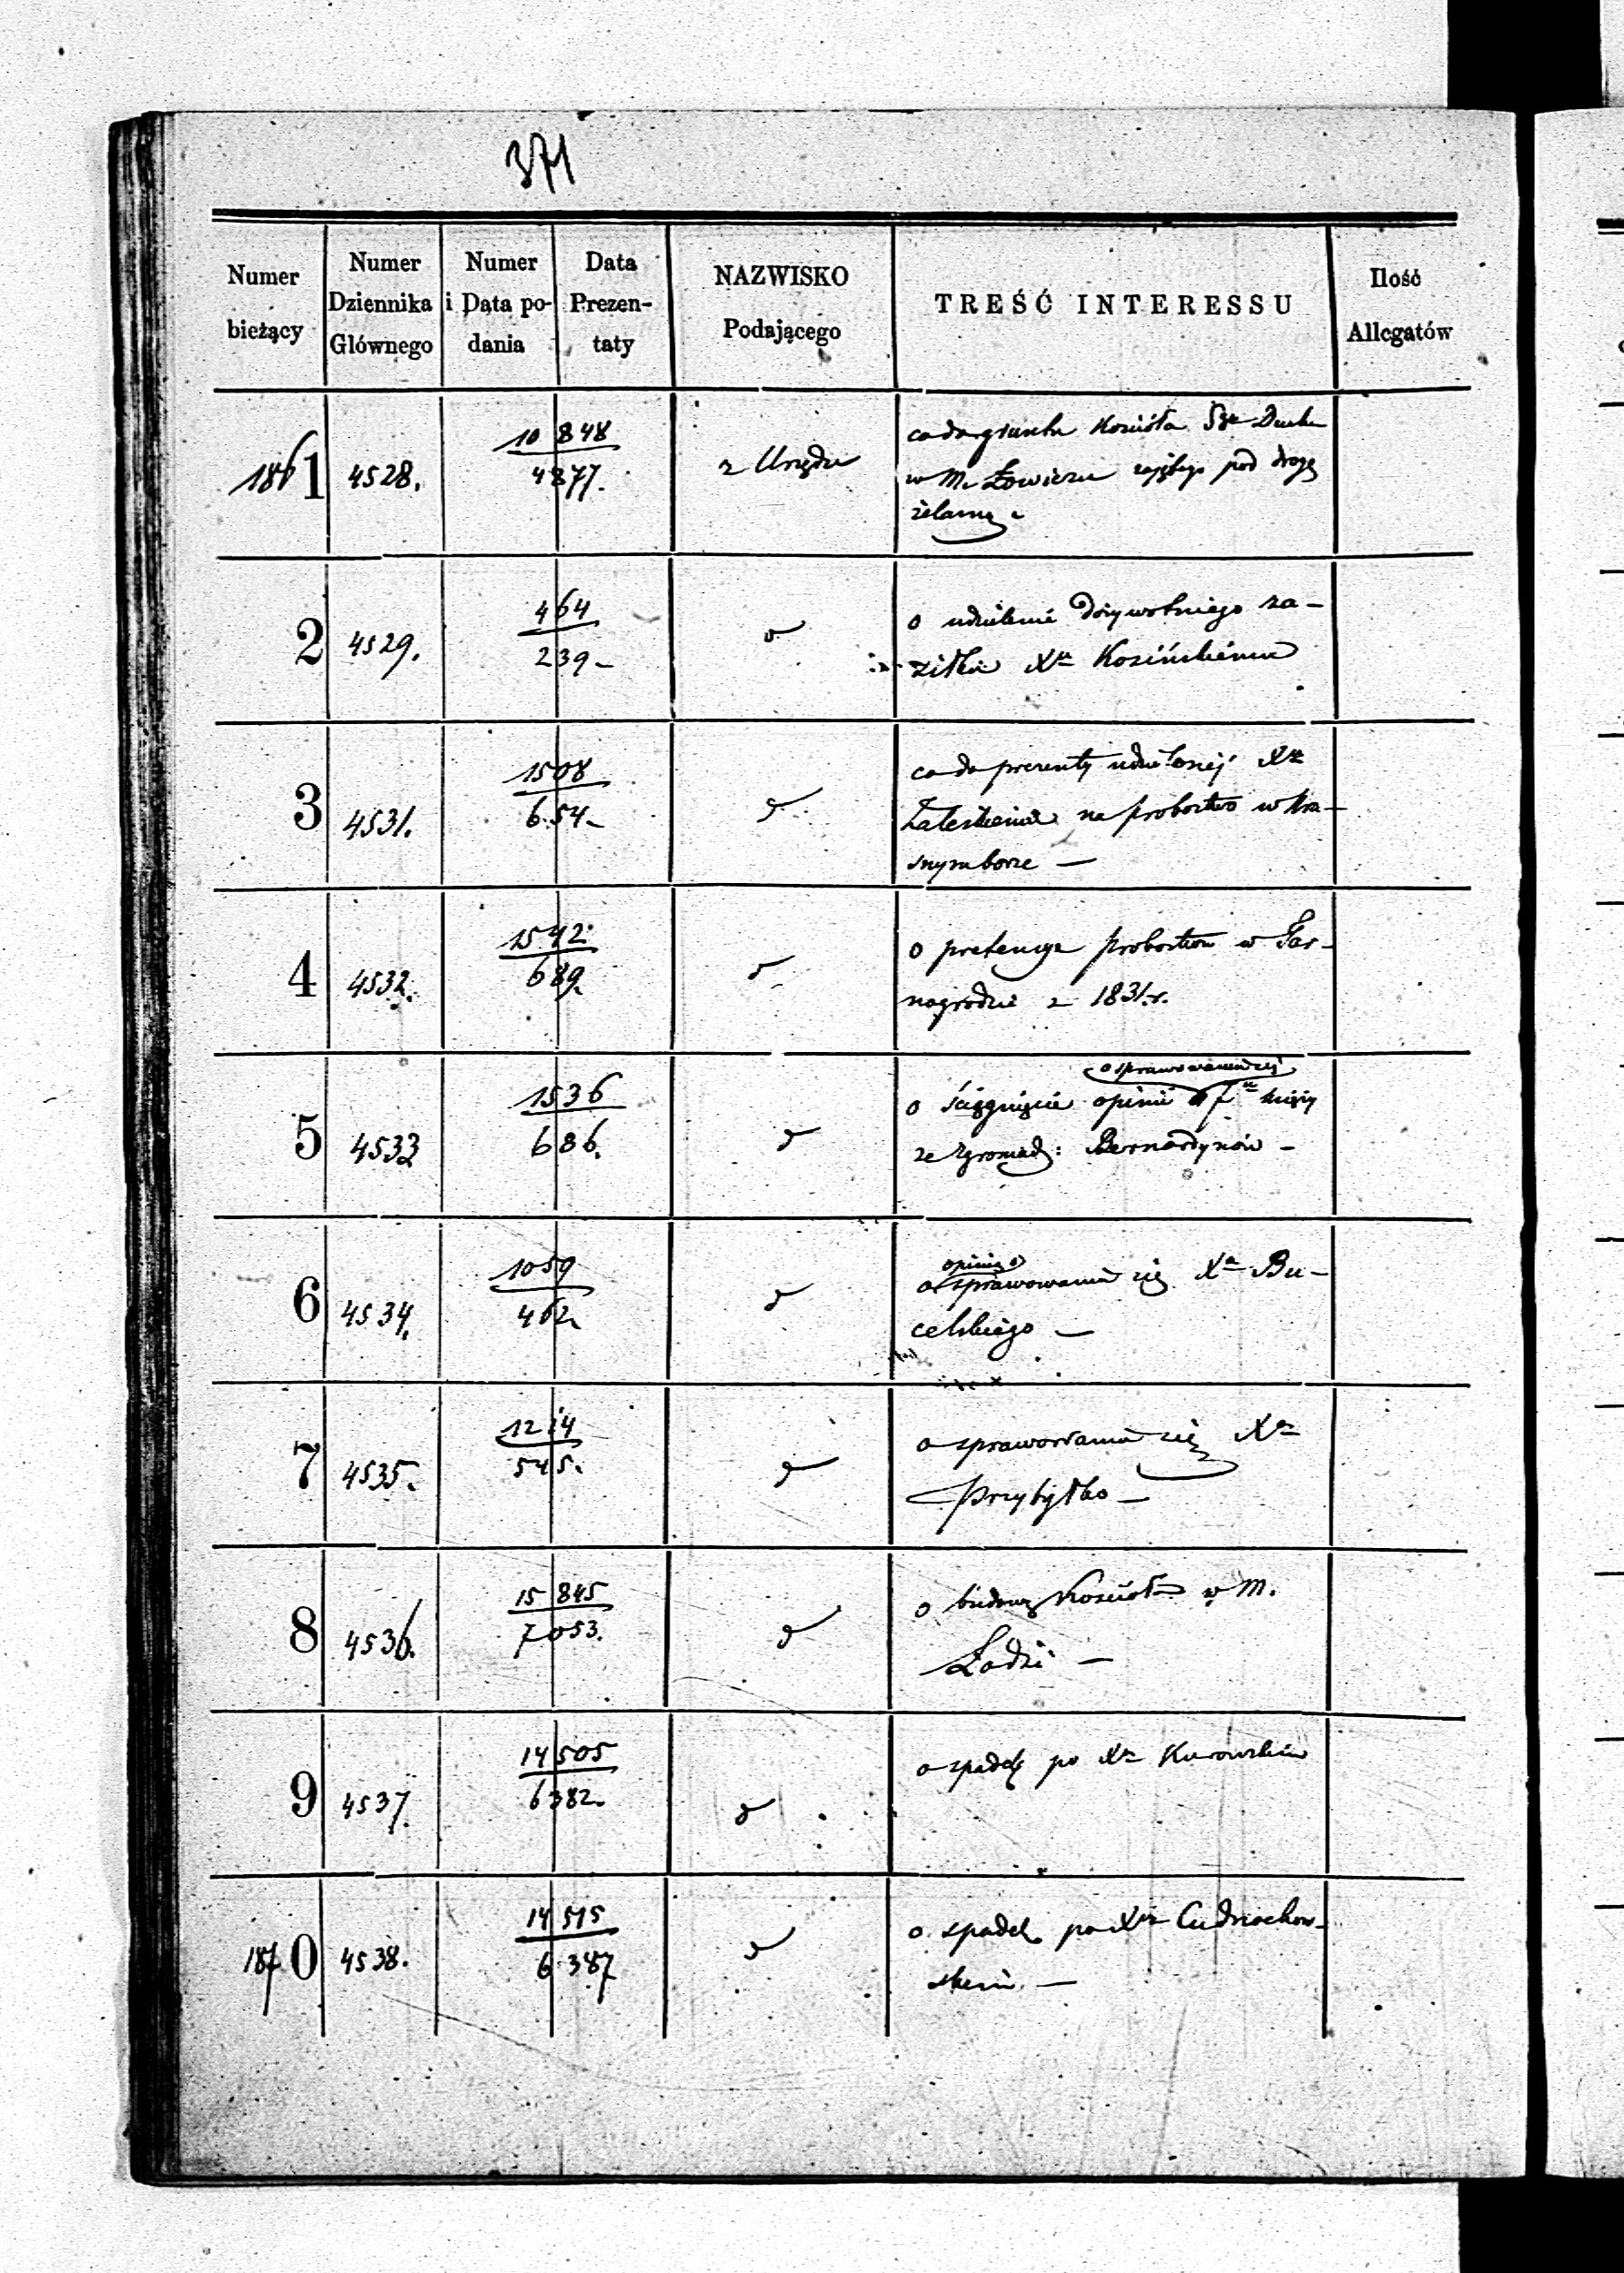 371
Numer bieżący | Numer Dziennika Głównego | Numer i Data podania | Data Prezentaty | NAZWISKO Podającego | TREŚĆ INTERESSU | Ilość Allegatów
1861 4528. 10848 / 4877. z Urzędu co do gruntu Kościoła Sgo Ducha
w M. Łowiczu zajętego pod drogę
żelazną
2 4529. 464 / 239 - o udzielenie dożywotniego za-
siłku Xu Kosińskiemu
3 4531. 1508 / 654 - co do prezenty udzielonej Xu
Zaleskiemu na probostwo w Kra-
snymborze —
4 4532. 1542 / 689. o pretensye probostwa w Tar-
nogrodzie z 1831 r.
5 4533 1536 / 686. o sprawowaniu się
o ściągnięcie opinii 7u księży
ze Zgromadz: Bernardynów -
6 4534. 1059 / 462. opinią o
o sprawowaniu się Xa Bu-
celskiego —
7 4535. 1214 / 545. o sprawowaniu się Xa
Przybyłko —
8 4536. 15845 / 7053. o budowę Kościoła w M.
Łodzi —
9 4537. 14505 / 6382. o spadek po Xu Kurowskim
1870 4538. 14515 / 6387 o spadek po Xu Cudnochow-
skim —